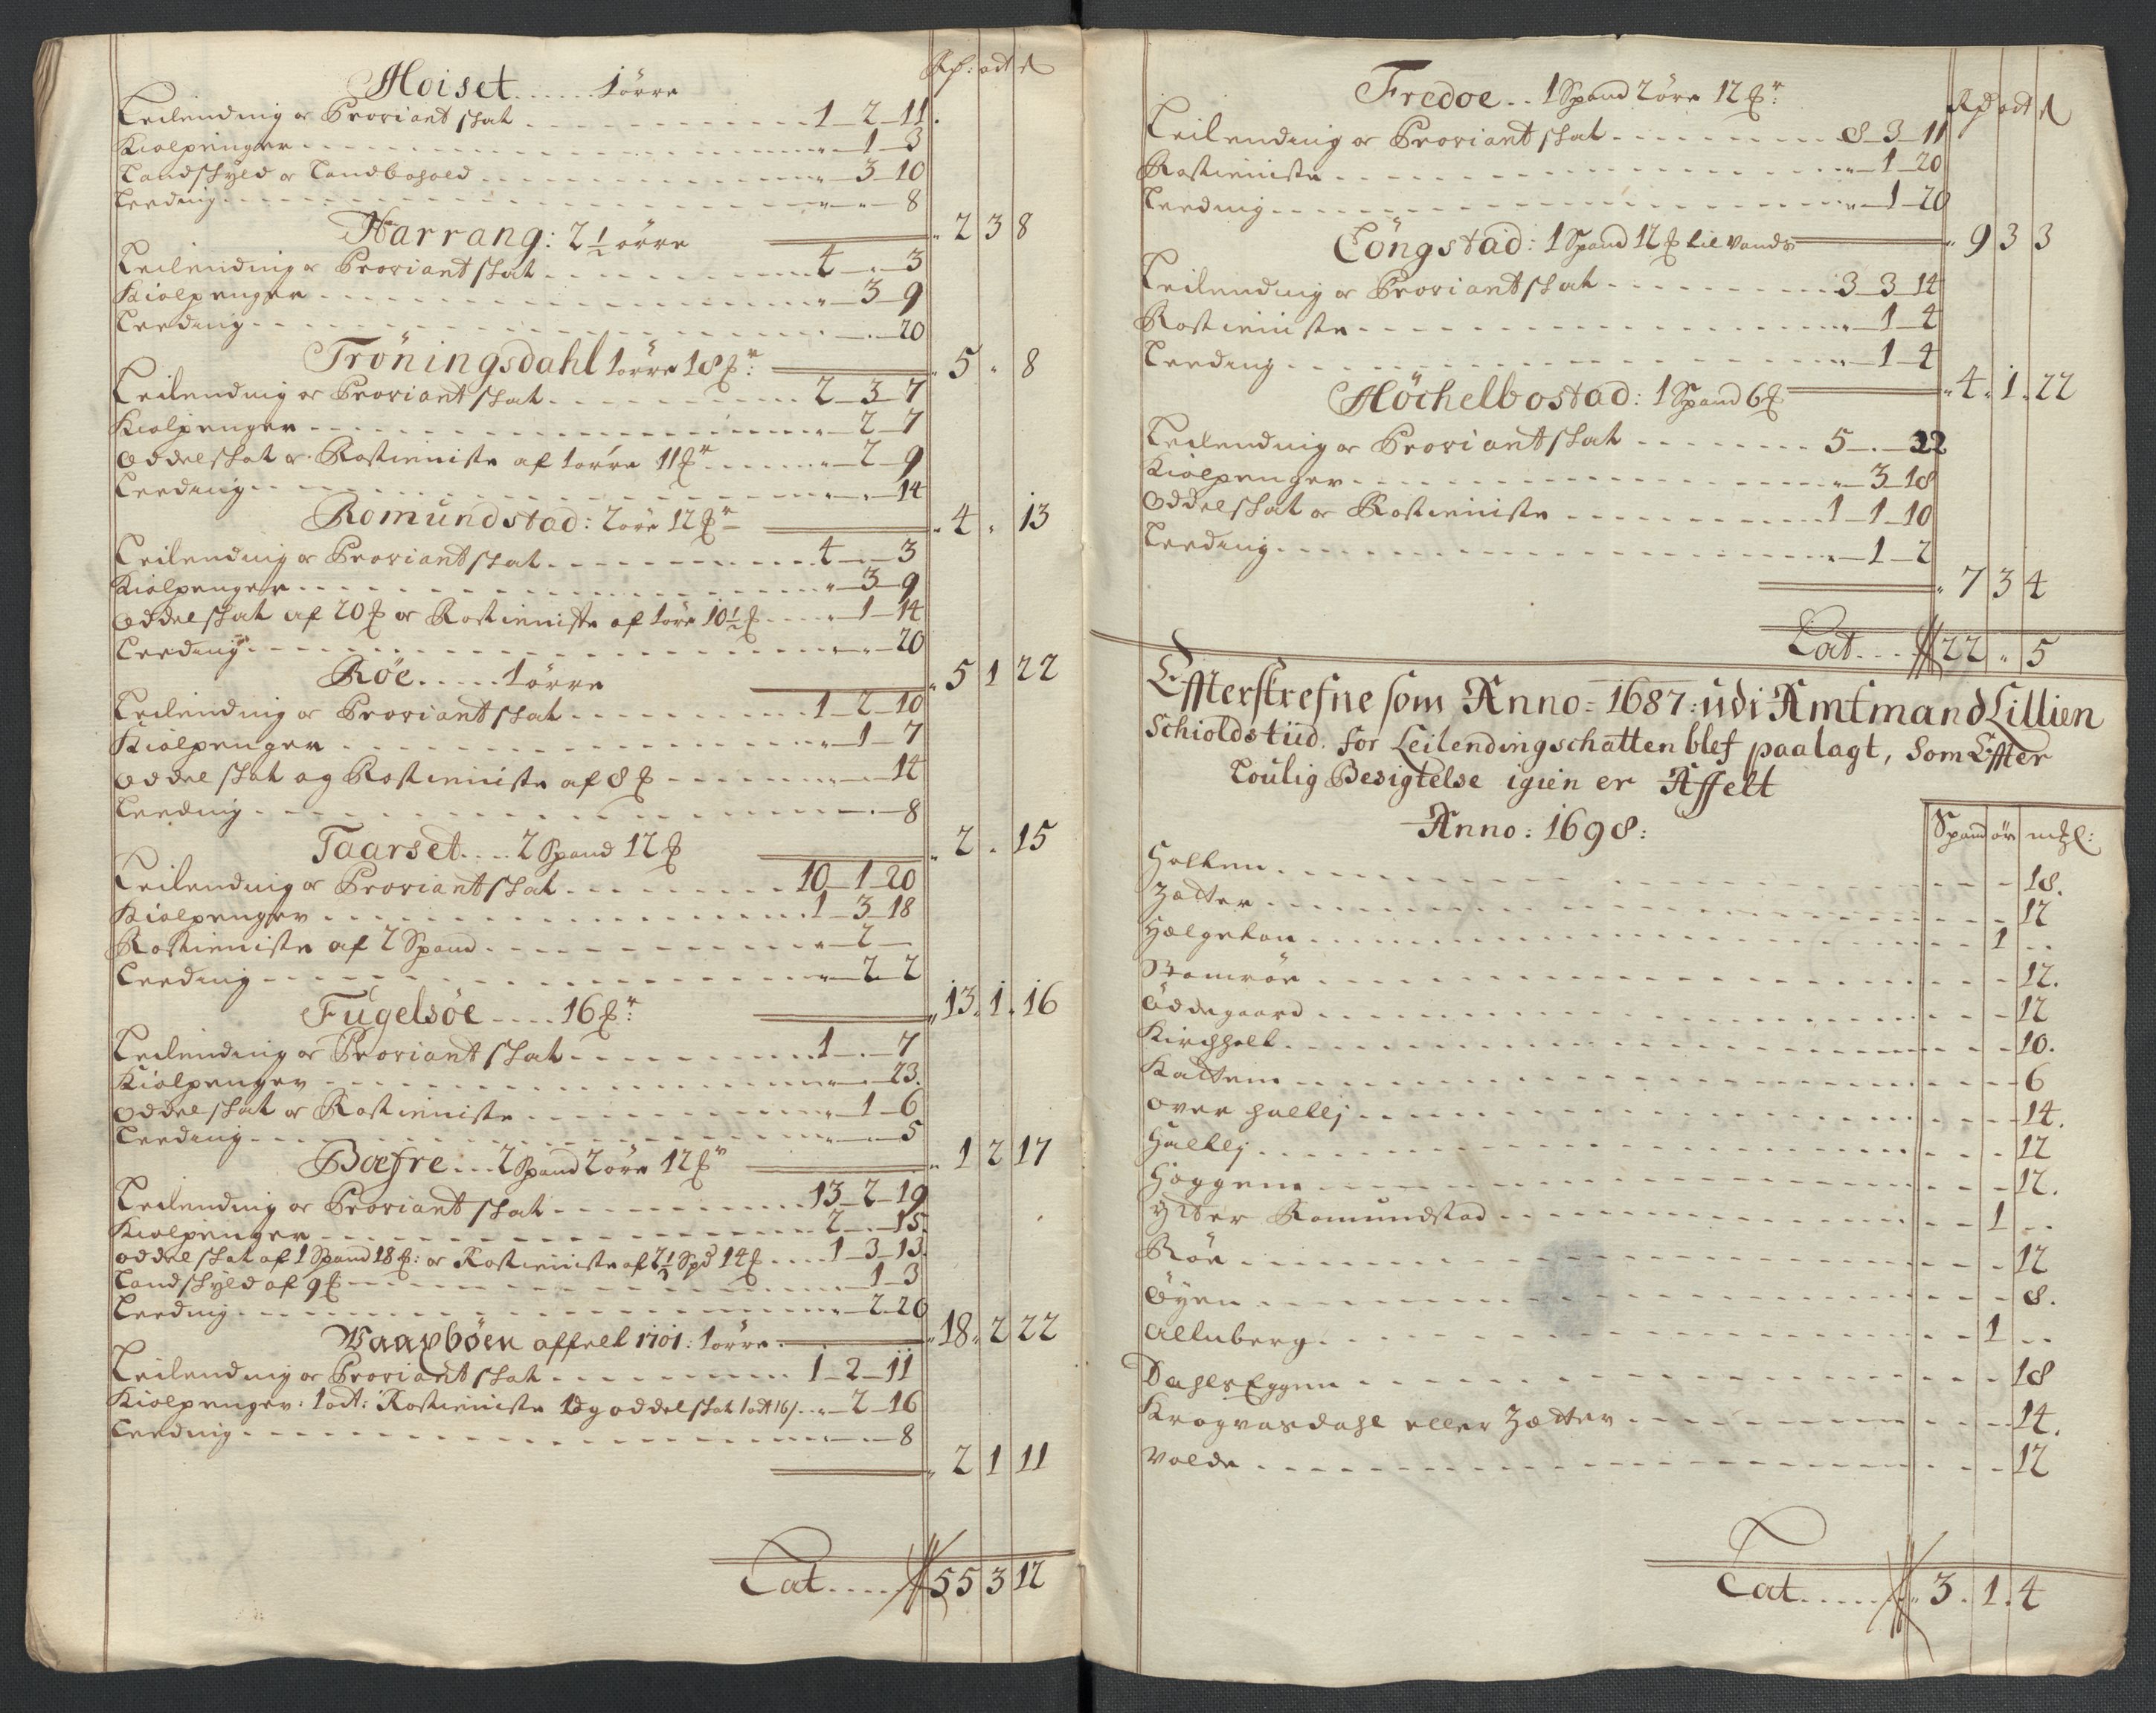 Rdr: ort s
Hoiset ...... 1 ørre
Leilending og Proviant skat ............ 1 – 2 – 11.
Kiølpenger ............ „ – 1 – 3
Landskyld og Landbohold ............ „ – 3 – 10
Leeding ............ „ – „ – 8
„ 2 | 3 | 8
Harrang: 2½ ørre
Leilending og Proviant skat ............ 4 – . – 3
Kiølpenger ............ „ – 3 – 9
Leeding ............ – . – 20
„ 5 | „ | 8
Trøningsdahl 1 ørre 18 ₰r:
Leilending og Proviant skat ............ 2 – 3 – 7
Kiølpenger ............ „ – 2 – 7
Oddelskat og Rostieniste af 1 ørre 11 ₰r ...... „ – 2 – 9
Leeding ............ „ – „ – 14
„ 4 | „ | 13
Romundstad: 2 øre 12 ₰r
Leilending og Proviant skat ............ 4 – . – 3
Kiølpenger ............ „ – 3 – 9
Oddelskat af 20 ₰ og Rostieniste af 1 øre 10½ ₰ .... „ – 1 – 14
Leeding ............ „ – „ – 20
„ 5 | 1 | 22
Røe ..... 1 ørre
Leilending og Proviant skat ............ 1 – 2 – 10
Kiølpenger ............ „ – 1 – 7
Oddelskat og Rostieniste af 8 ₰ ...... „ – „ – 14
Leeding ............ – . – 8
„ 2 | . | 15
Taarset .... 2 Spand 12 ₰
Leilending og Proviant skat ............ 10 – 1 – 20
Kiølpenger ............ 1 – 3 – 18
Rostieniste af 2 Spand ............ „ – 2 –
Leeding ............ „ – 2 – 2
„ 13 | 1 | 16
Fugelsøe .... 16 ₰r:
Leilending og Proviant skat ............ 1 – . – 7
Kiølpenger ............ „ – „ – 23.
Oddelskat og Rostieniste ............ „ – 1 – 6
Leeding ............ „ – „ – 5
„ 1 | 2 | 17
Bæfre ... 2 Spand 2 øre 12 ₰r
Leilending og Proviant skat ............ 13 – 2 – 19
Kiølpenger ............ 2 – . – 15.
Oddelskat af 1 Spand 18 ₰: og Rostieniste af 2½ Spd 14 ₰ .... 1 – 3 – 13.
Landskyld af 9 ₰ ............ – 1 – 3
Leeding ............ „ – 2 – 20
„ 18 | 2 | 22
Waagbøen affelt 1701: 1 ørre
Leilending og Proviant skat ............ 1 – 2 – 11
Kiølpenger: 1 ort: Rostieniste og oddelskat 1 ort 16 s .. „ – 2 – 16
Leeding ............ „ – „ – 8
„ 2 | 1 | 11
Lat ..... 55 | 3 | 12
Rdr ort s
Fredoe .. 1 Spand 2 øre 12 ₰r:
Leilending og Proviant skat ............ 8 – 3 – 11
Rostieniste ............ „ – 1 – 20
Leeding ............ „ – 1 – 20
„ 9 | 3 | 3
Løngstad: 1 Spand 12 ₰ til Vands
Leilending og Proviant skat ............ 3 – 3 – 14
Rostieniste ............ „ – 1 – 4
Leeding ............ „ – 1 – 4
„ 4 | 1 | 22
Høchelbostad: 1 Spand 6 ₰
Leilending og Proviant skat ............ 5 – . – 22
Kiølpenger ............ „ – 3 – 18
Oddelskat og Rostieniste ............ 1 – 1 – 10
Leeding ............ „ – 1 – 2
„ 7 | 3 | 4
Lat .... 22 | „ | 5
Effterskrefne som Anno = 1687: udi Amtmand Lillien
Schiolds tiid. for Leilendingschatten blef paalagt, Som Effter
Loulig Besigtelse igien er Affelt
Anno: 1698:
Spand | ør | mkl:
Holken ............ 18.
Zætter ............ 12
Helgeton ............ 1 ..
Stamrøe ............ 12.
Øddegaard ............ 12
Kirchholt ............ 10.
Kattem ............ 6
Over halllj ............ 14.
Halllj ............ 12
Hoggem ............ 12.
Ytter Romundstad ............ 1 ..
Røe ............ 12
Øyen ............ 8.
Allnberg ............ 1 ..
Dahls Eggen ............ 18
Krogvasdahl eller Zætter ............ 14.
Volde ............ 12
Lat ...... 3. | 1. | 4